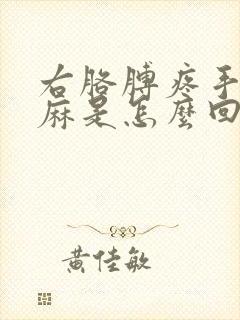 右胳膊疼手
麻是怎麼回
黃佳敏